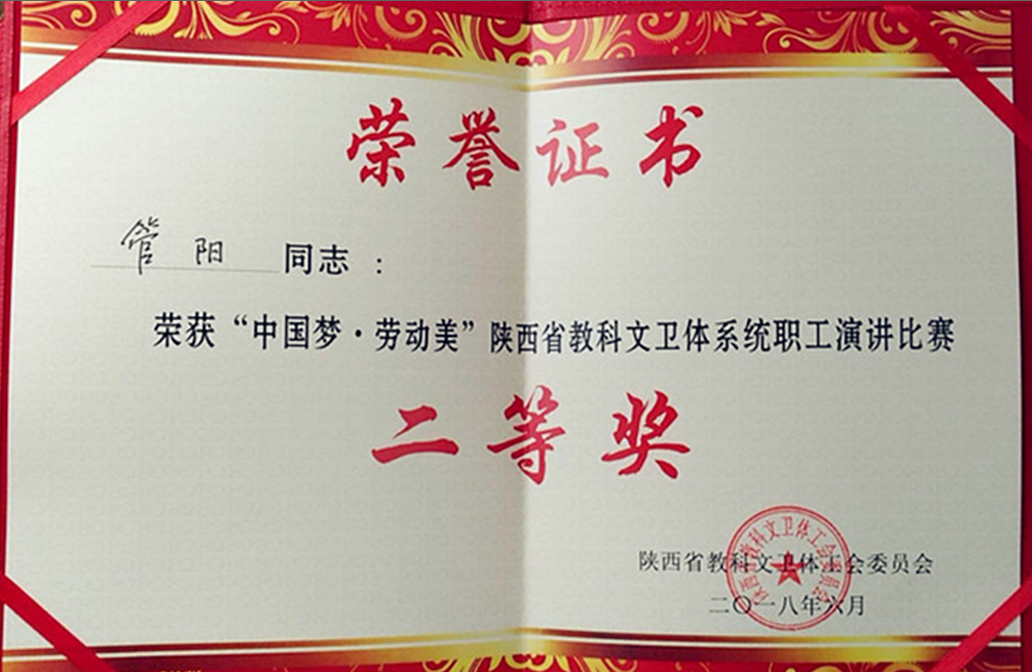 荣誉证书
管阳 同志：
荣获“中国梦·劳动美”陕西省教科文卫体系统职工演讲比赛
二等奖
陕西省教科文卫体工会委员会
二〇一八年六月
陕西省教科文卫体工会委员会